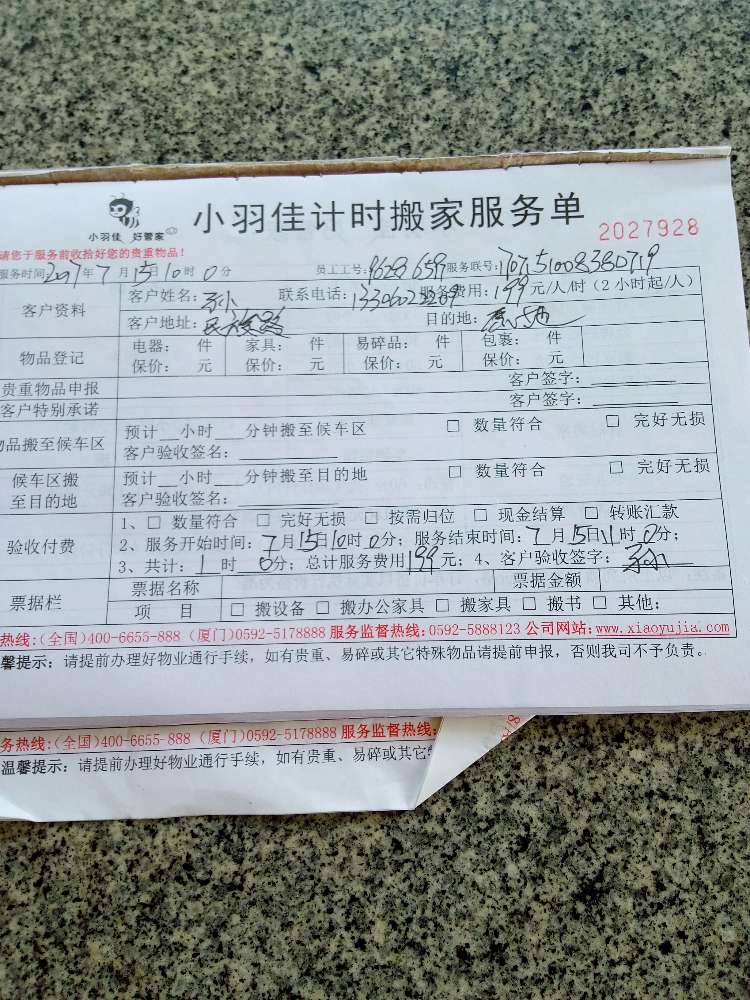 小羽佳 好管家
小羽佳计时搬家服务单
2027928
请您于服务前收拾好您的贵重物品!
服务时间:2017年7月15日10时0分 员工工号: 服务联号:
客户资料 客户姓名:孙 联系电话: 服务费用:199元/人/时(2小时起/人)
客户地址: 目的地:
物品登记 电器: 件 家具: 件 易碎品: 件 包裹: 件
保价: 元 保价: 元 保价: 元 保价: 元
贵重物品申报 客户签字:
客户特别承诺 客户签字:
物品搬至候车区 预计__小时___分钟搬至候车区 □ 数量符合 □ 完好无损
客户验收签名:
候车区搬至目的地 预计__小时___分钟搬至目的地 □ 数量符合 □ 完好无损
客户验收签名:
验收付费 1、□ 数量符合 □ 完好无损 □ 按需归位 □ 现金结算 □ 转账汇款
2、服务开始时间:7月15日10时0分;服务结束时间:7月15日11时0分;
3、共计:1时0分;总计服务费用199元;4、客户验收签字:孙
票据栏 票据名称 票据金额
项 目 □ 搬设备 □ 搬办公家具 □ 搬家具 □ 搬书 □ 其他:
热线:(全国)400-6655-888 (厦门)0592-5178888 服务监督热线:0592-5888123 公司网站:www.xiaoyujia.com
馨提示:请提前办理好物业通行手续,如有贵重、易碎或其它特殊物品请提前申报,否则我司不予负责。
务热线:(全国)400-6655-888 (厦门)0592-5178888 服务监督热线:
温馨提示:请提前办理好物业通行手续,如有贵重、易碎或其它